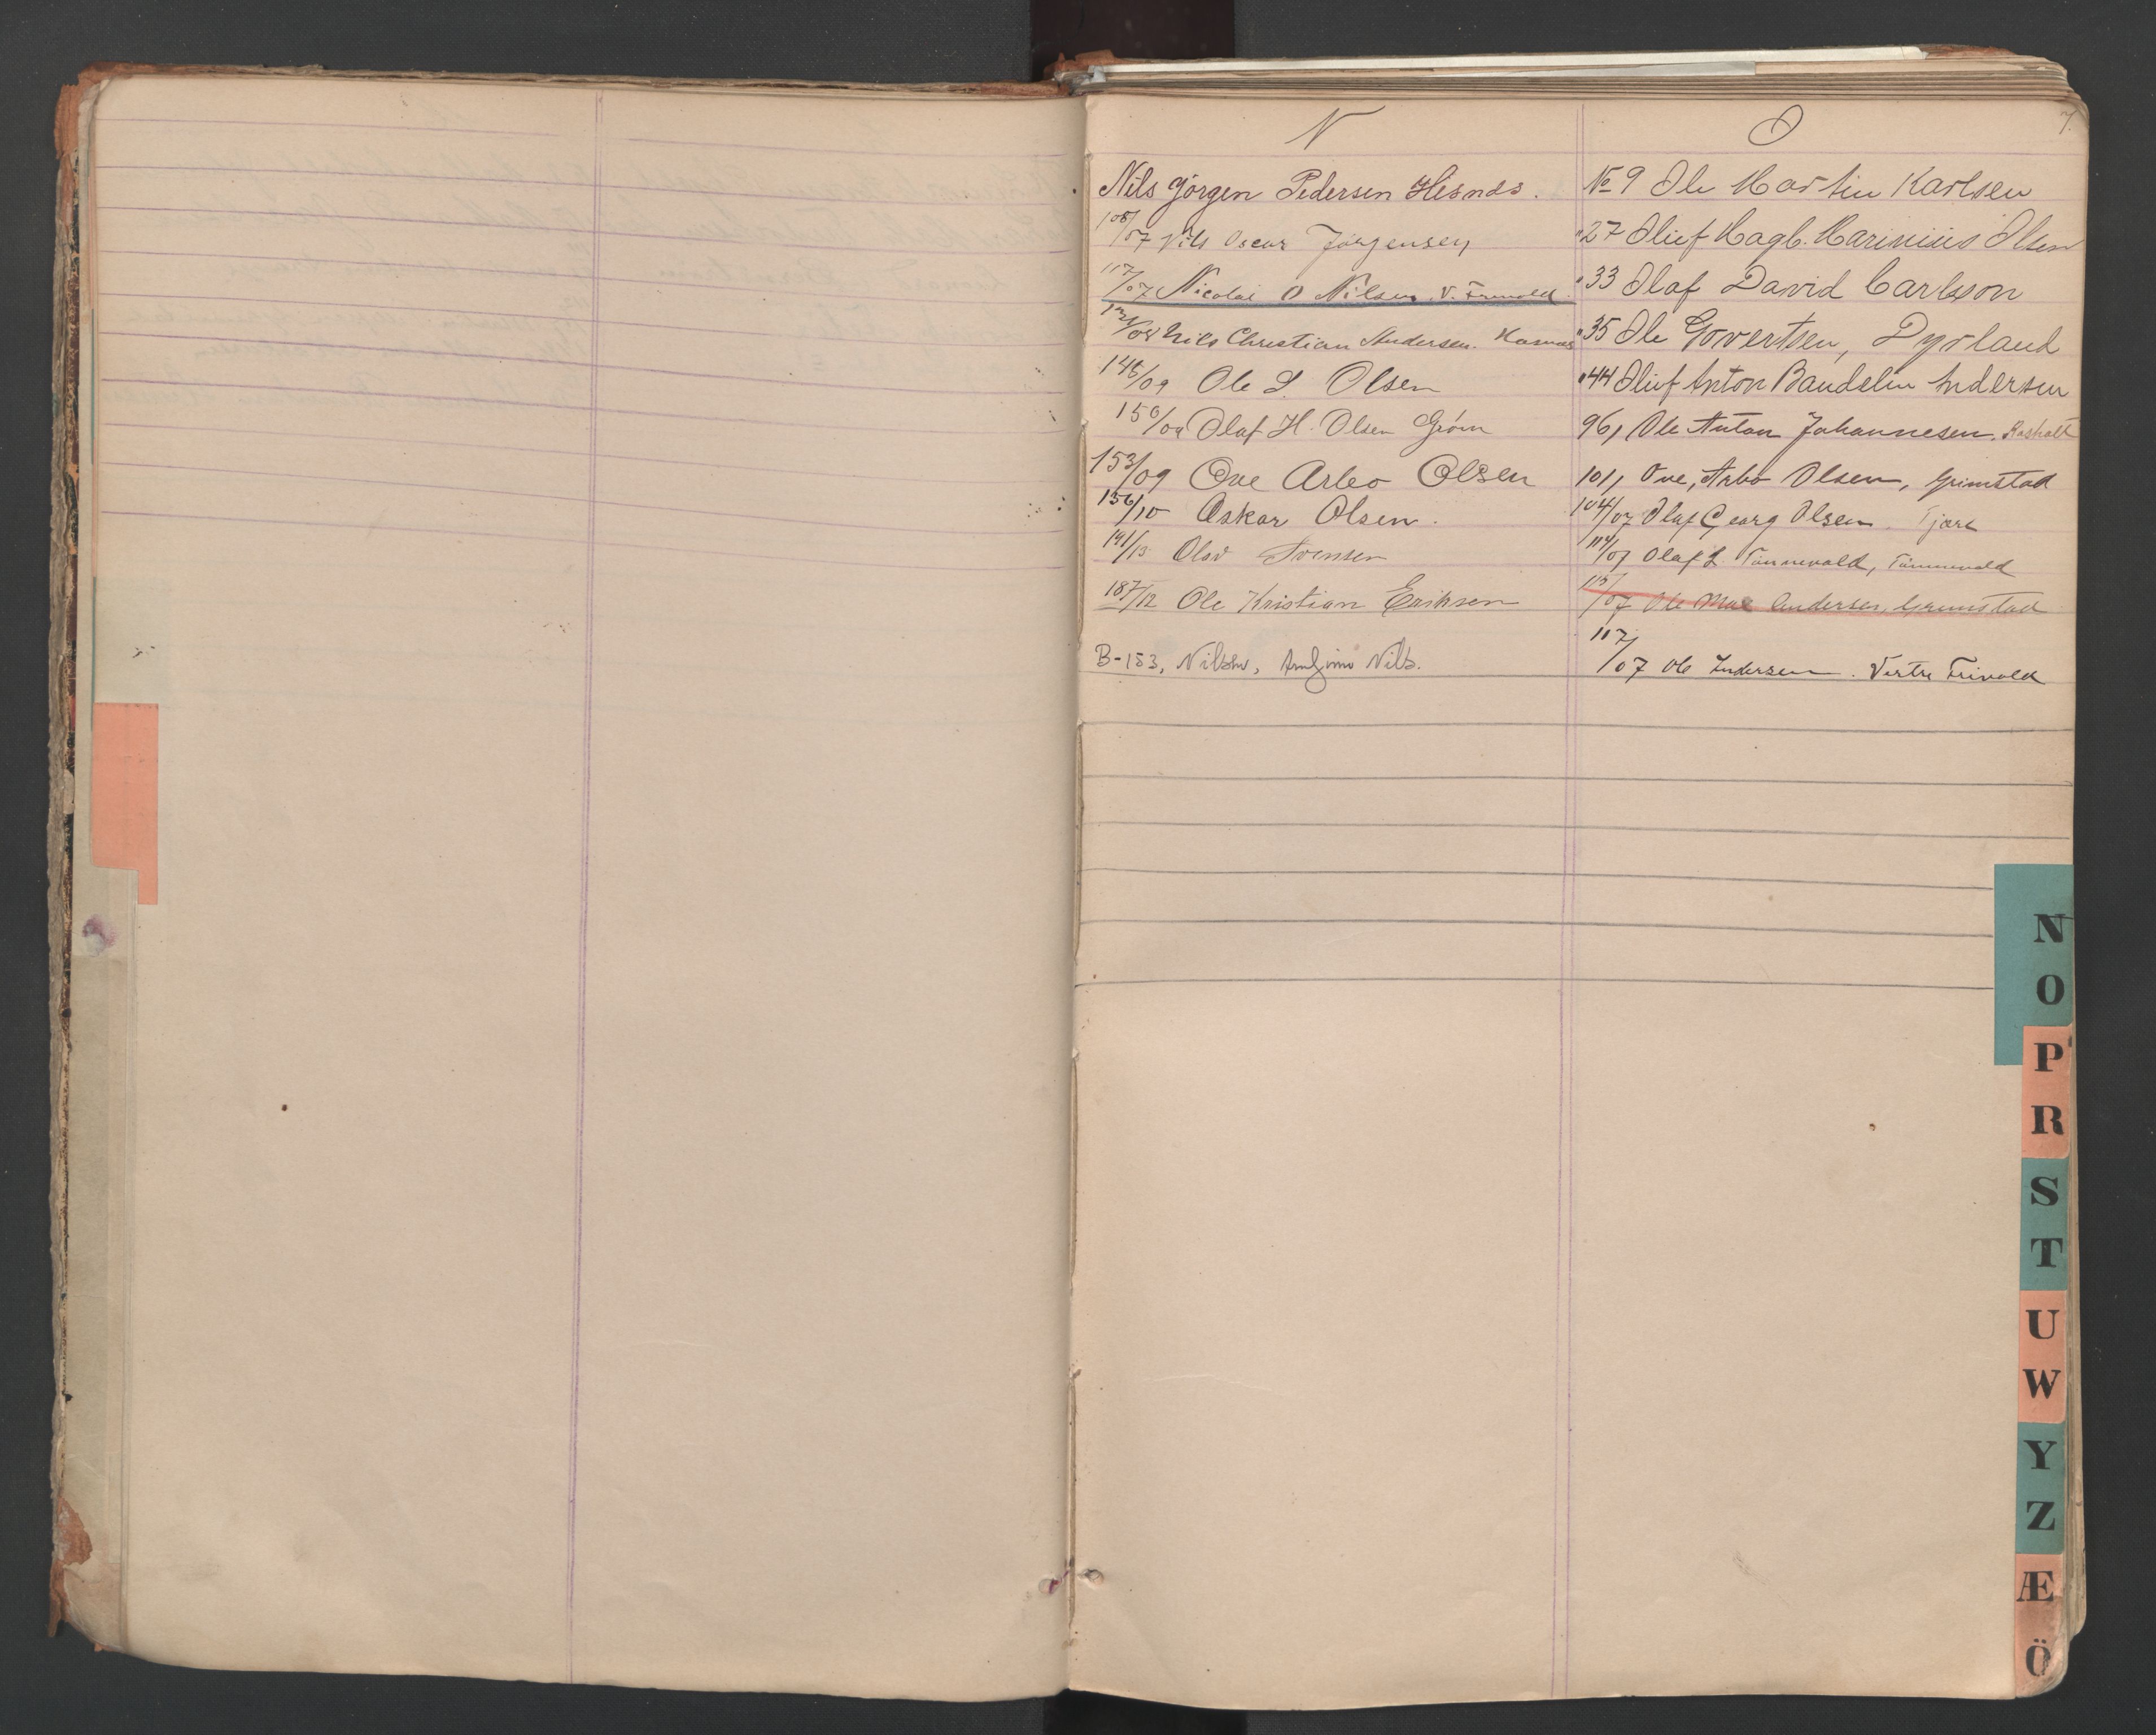 7.
N
Nils Jörgen Pedersen Hesnæs.
108/07 Nils Oscar Jörgensen
117/07 Nicolai O Nilsen, V. Frivold
/08 Nils Christian Andersen.
148/09 Ole S. Olsen
150/09 Olaf H. Olsen Grøm
153/09 Ove Arbo Olsen
156/10 Oskar Olsen.
191/13 Olav Svensen
187/12 Ole Kristian Eriksen
B-153, Nilsen, Nils.
O
No 9 Ole Martin Karlsen
" 27 Oluf Hagb. Marinius Olsen
" 33 Olaf David Carlson
" 35 Ole Govertsen, Dyrland
" 44 Oluf Anton Bandelin Andersen
96, Ole Anton Johannesen, Rosholt
101, Ove, Arbo Olsen, Grimstad
104/07 Olaf Georg Olsen. Fjære
114/07 Olaf L. Tønnevold, Tønnevold
115/07 Ole Mac Andersen, Grimstad
117/07 Ole Andersen. Vestre Frivold
N
O
P
R
S
T
U
W
Y
Z
Æ
Ö